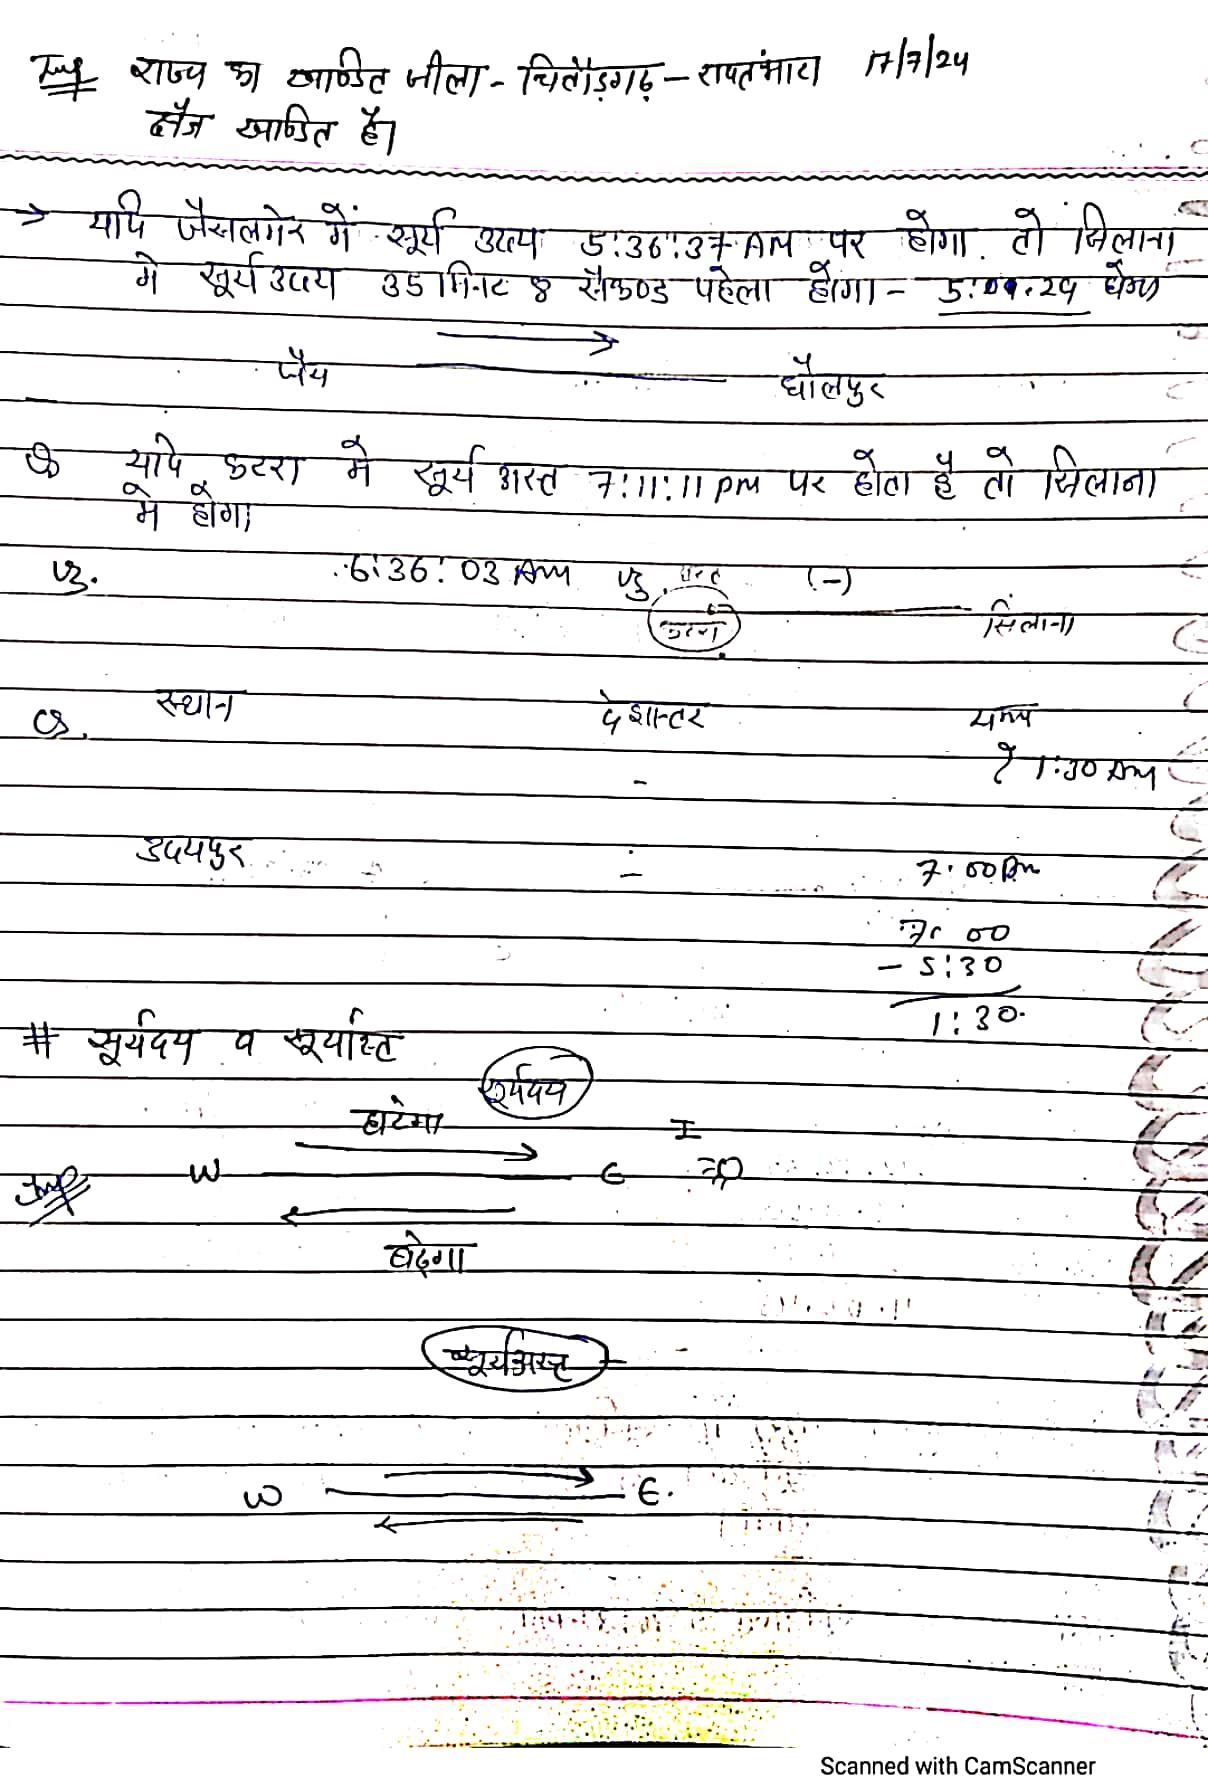 Imp राज्य का खण्डित जीला - चितौड़गढ़ - रावतभाटा 17/7/24
क्षैत्र खण्डित है।
→ यदि जैसलमेर में सूर्य उदय 5:36:37 AM पर होगा तो सिलाना
मे सूर्य उदय 35 मिनिट 8 सैकण्ड पहेला होगा - 5:01.29
जैस
धौलपुर
यदि कटरा मे सूर्य अस्त 7:11:11 pm पर होता है तो सिलाना
मे होगा
6:36:03 AM (-)
कटरा सिलाना
Q. स्थान देशान्तर समय
- ? 1:30 AM
उदयपुर - 7.00 Am
7:00
- 5:30
1:30.
# सूर्यदय व सूर्यास्त
सूर्यदय
हाटेगा
Imp W E
बढ़ेगा
सूर्यअस्त
W E.
Scanned with CamScanner